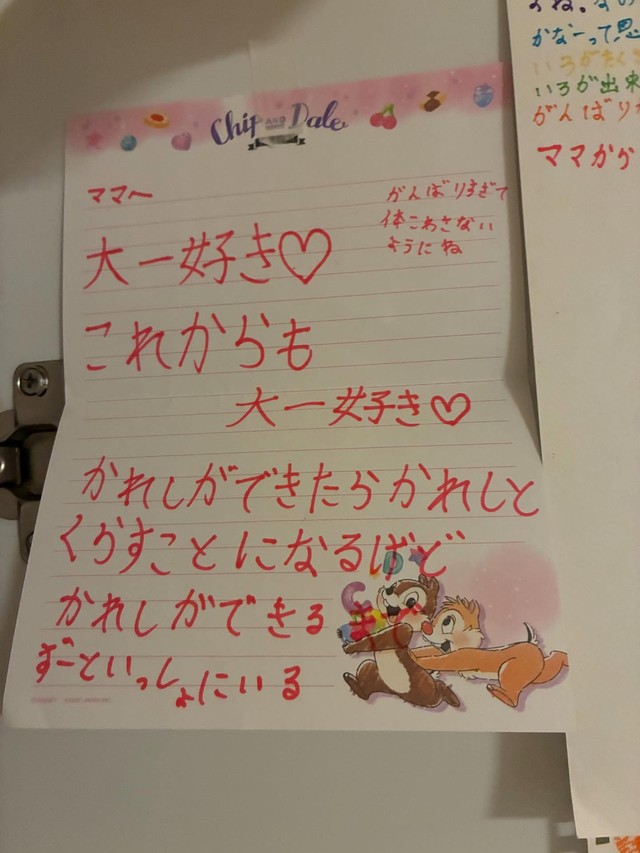 Chip AND Dale
ママへ
がんばりすぎて
体こわさない
ようにね
大一好き♡
これからも
大一好き♡
かれしができたらかれしと
くらすことになるけど
かれしができるまで
ずーといっしょにいる
かなーって思
いろがたくさ
いろが出来
がんばりか
ママから